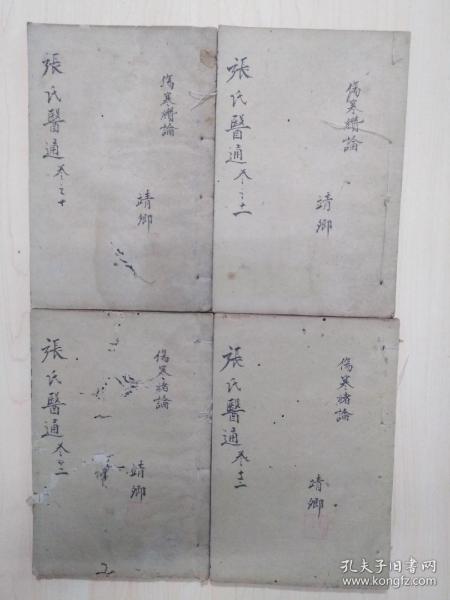 張氏醫通 卷之十
傷寒緒論
靖鄉
張氏醫通 卷之十一
傷寒緒論
靖鄉
張氏醫通
傷寒緒論
靖鄉
張氏醫通
傷寒緒論
靖鄉
孔夫子旧书网
www.kongfz.com